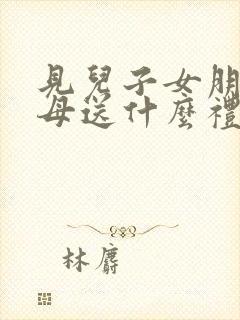 見兒子女朋
母送什麼禮
林麝